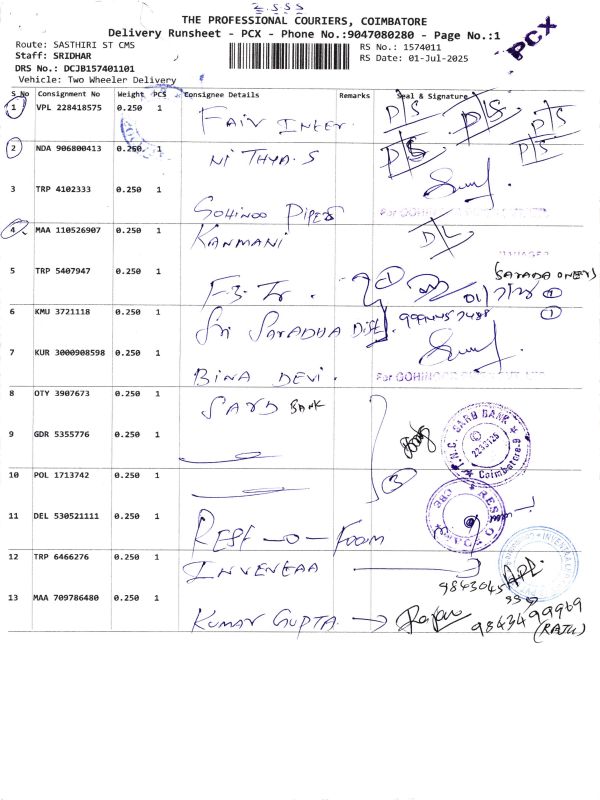 THE PROFESSIONAL COURIERS, COIMBATORE
Delivery Runsheet - PCX - Phone No.:9047080280 - Page No.:1
PCX
Route: SASTHIRI ST CMS
RS No.: 1574011
Staff: SRIDHAR
RS Date: 01-Jul-2025
DRS No.: DCJB157401101
Vehicle: Two Wheeler Delivery
S No Consignment No Weight PCS Consignee Details Remarks Seal & Signature
1 VPL 228418575 0.250 1 FAIV INTER. D/S D/S D/S
2 NDA 906800413 0.250 1 NITHYA.S D/S D/S
3 TRP 4102333 0.250 1 GOHINOO PIPES
4 MAA 110526907 0.250 1 KANMANI D/L
MANAGER
5 TRP 5407947 0.250 1 F-3. Tr. 1 SARADA
6 KMU 3721118 0.250 1 Sri SARADHA Dist. 1
7 KUR 3000908598 0.250 1 BINA DEVI.
8 OTY 3907673 0.250 1 SARD BANK
SARD BANK
Coimbatore
9 GDR 5355776 0.250 1
10 POL 1713742 0.250 1 3
11 DEL 530521111 0.250 1 REST-O-FOAM
12 TRP 6466276 0.250 1 INVENEAA
9843045
13 MAA 709786480 0.250 1 KUMAR GUPTA → Raju
9843499969
(RAJU)